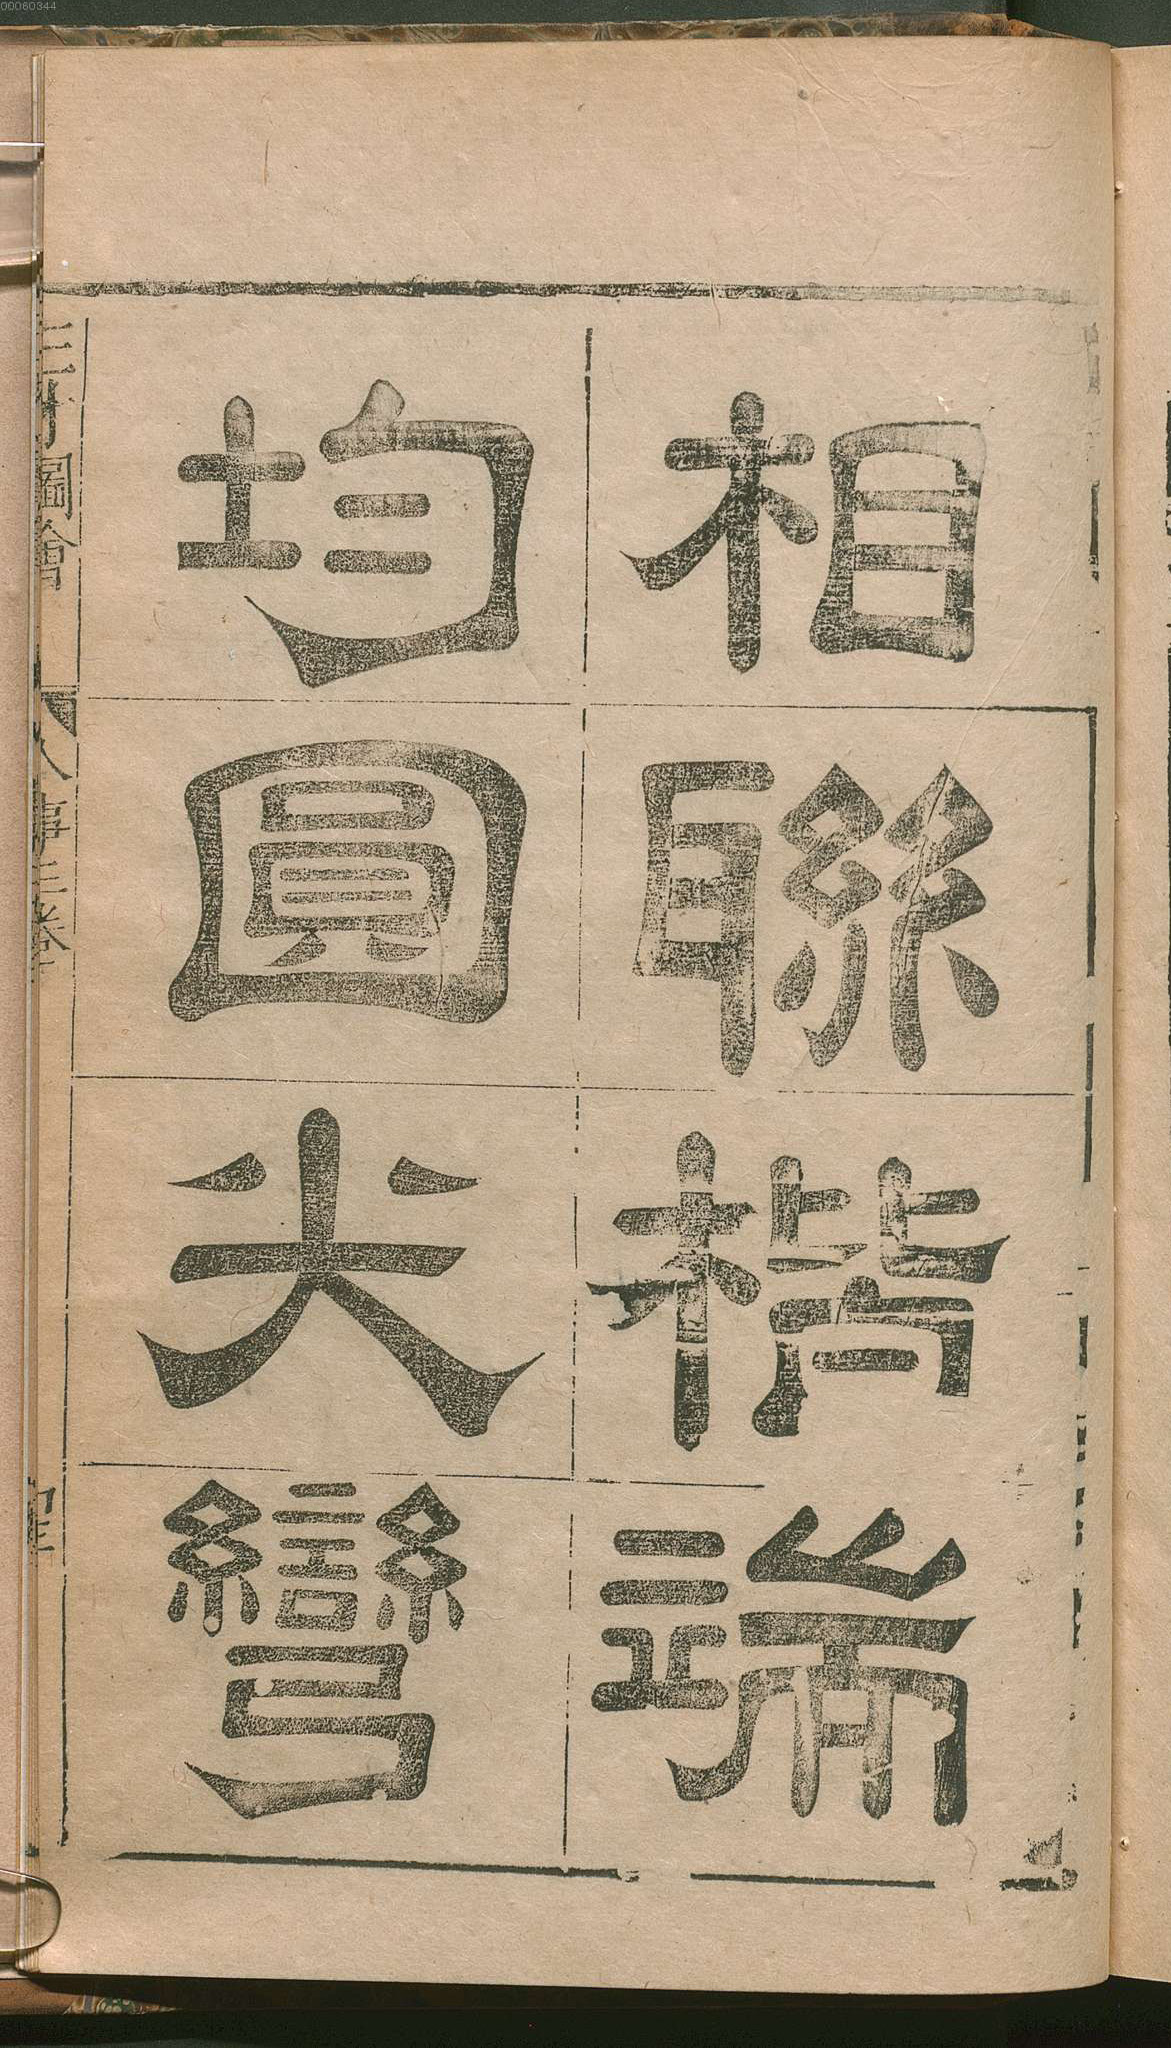 相聯精端
均圓尖彎
三才圖會
人事三卷
00060344